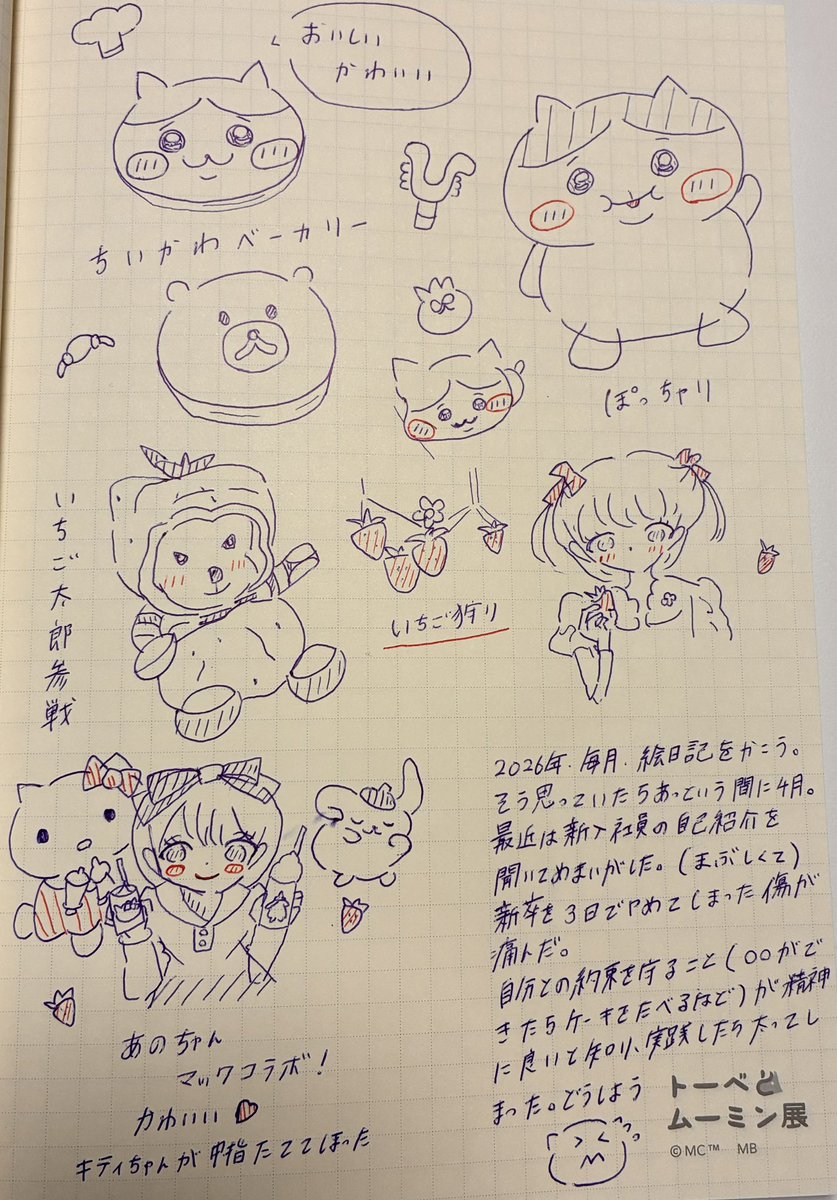 おいしい
かわいい
ちいかわベーカリー
ぽっちゃり
いちご太郎参戦
いちご狩り
あのちゃん
マックコラボ！
かわいい
キティちゃんが中指たててしまった
2026年.毎月.絵日記をかこう。
そう思っていたらあっという間に4月。
最近は新入社員の自己紹介を
聞いてめまいがした。(まぶしくて)
新卒を3日でやめてしまった傷が
痛んだ。
自分との約束を守ること(○○がで
きたらケーキをたべるなど)が精神
に良いと知り、実践したら太ってし
まった。どうしよう
トーベと
ムーミン展
©MC™ MB